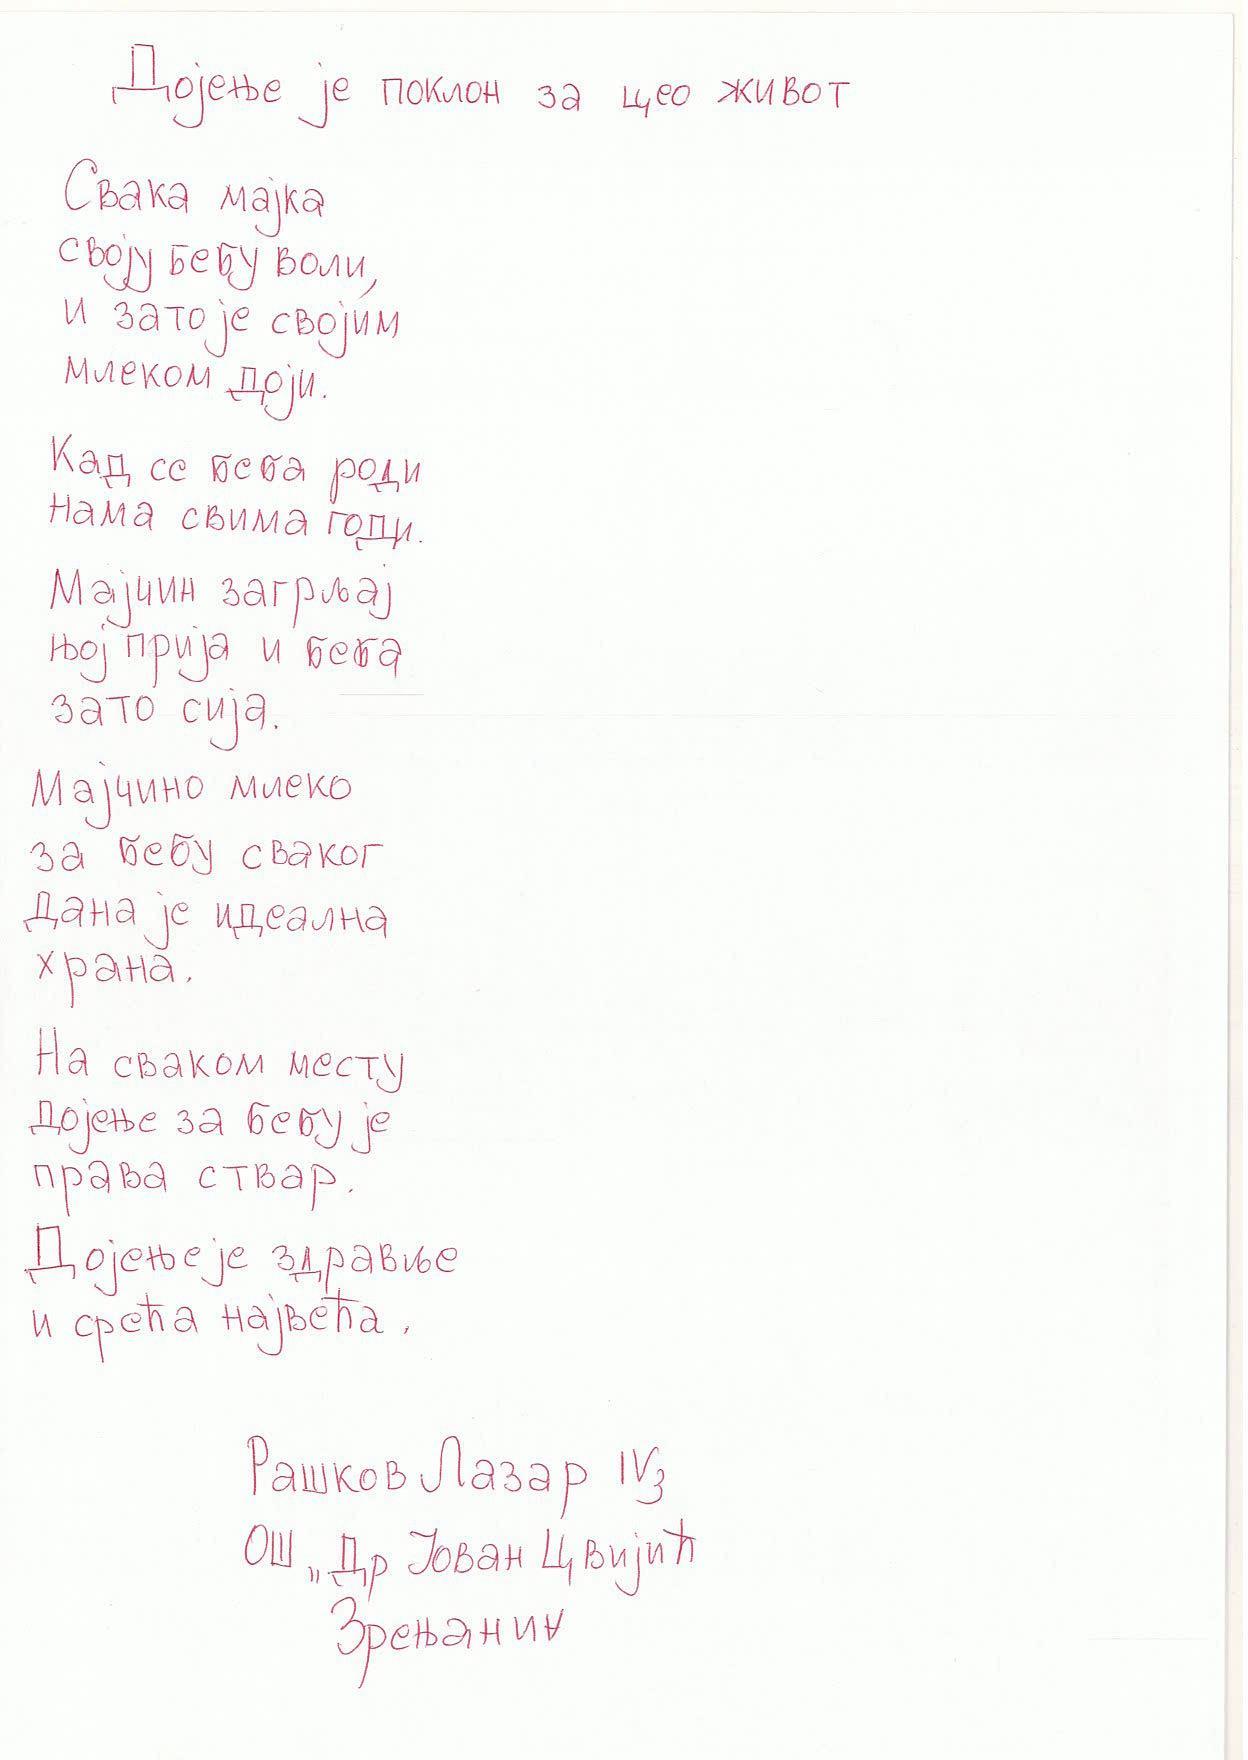 Дојење је поклон за цео живот
Свака мајка
своју бебу воли,
и зато је својим
млеком доји.
Кад се беба роди
нама свима годи.
Мајчин загрљај
њој прија и беба
зато сија.
Мајчино млеко
за бебу сваког
дана је идеална
храна.
На сваком месту
дојење за бебу је
права ствар.
Дојење је здравље
и срећа највећа.
Рашков Лазар IV3
ОШ „Др Јован Цвијић
Зрењанин